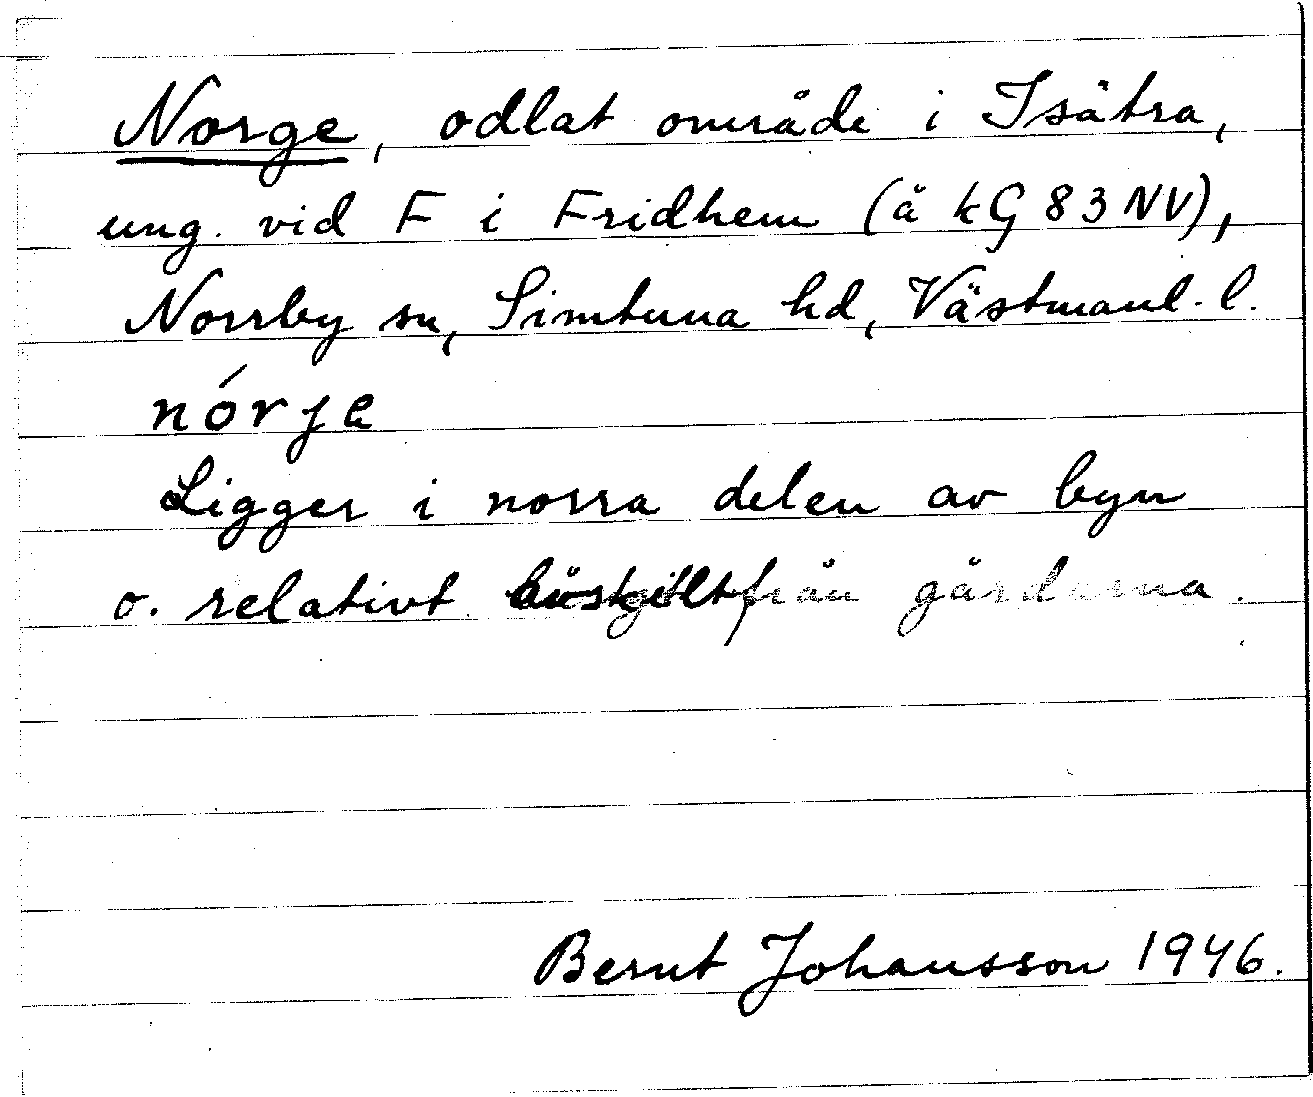 Norge, odlat område i Isätra,
ung. vid F i Fridhem (å kG 83 NV),
Norrby sn, Simtuna hd, Västmanl. l.
nórje
Ligger i norra delen av byn
o. relativt från gårdarna.
Bernt Johansson 1946.